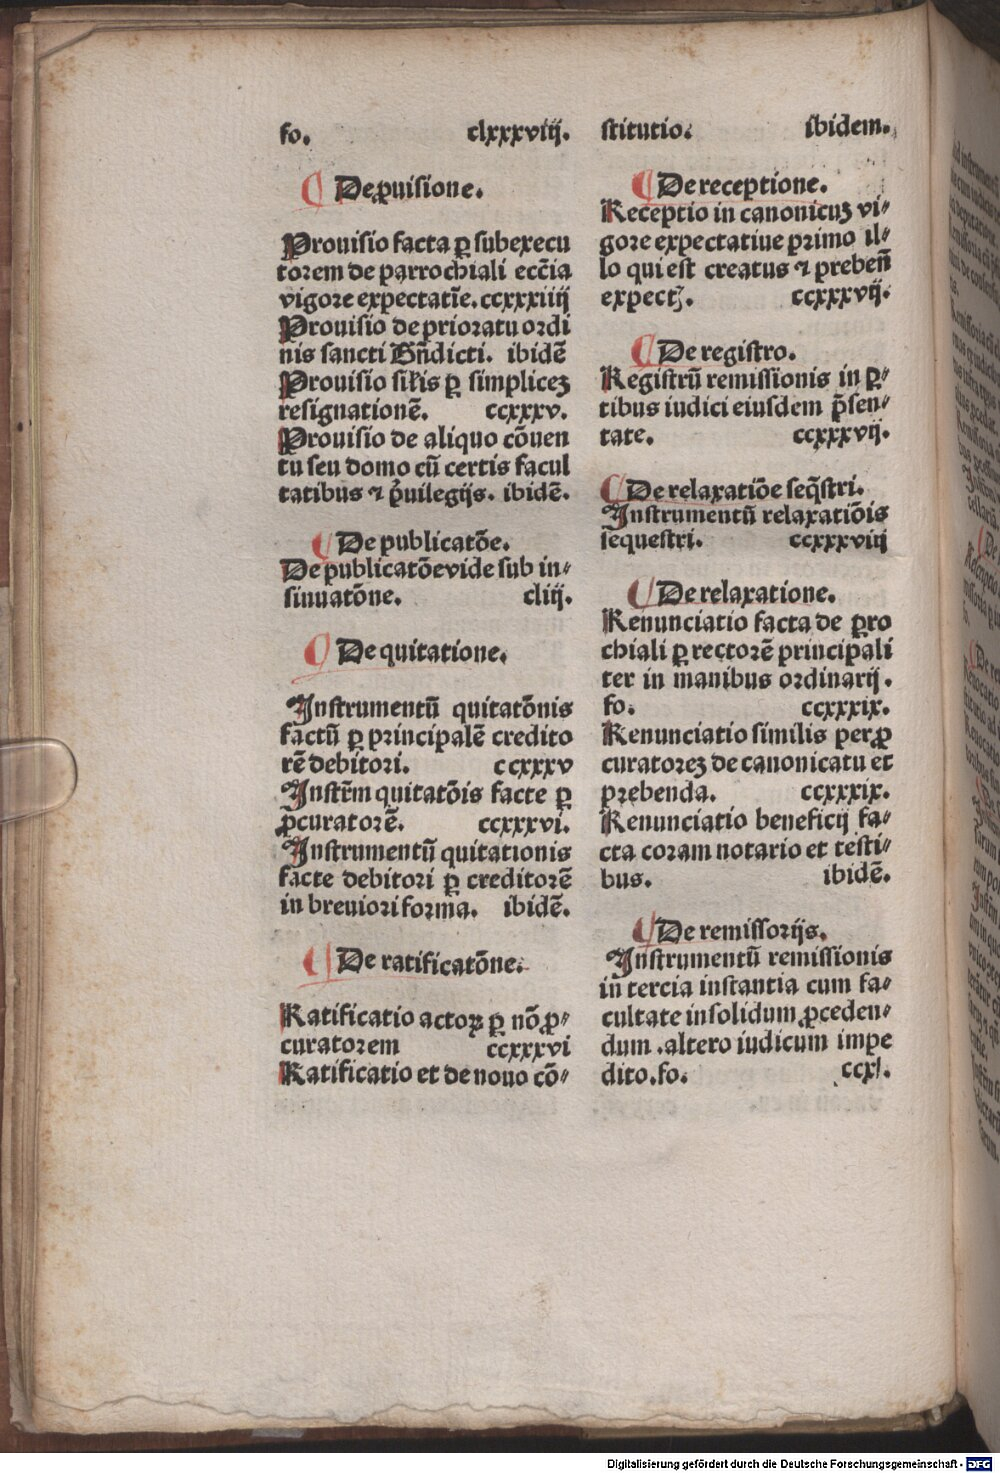 fo. clxxxviij.
¶ De ꝓuisione.
Prouisio facta ꝑ subexecu
torem de parrochiali ecc̄ia
vigore expectatīe. ccxxxiiij
Prouisio de prioratu ordi
nis sancti Bn̄dicti. ibidē
Prouisio sil̄is ꝑ simplicez
resignationē. ccxxxv.
Prouisio de aliquo cōuen
tu seu domo cū certis facul
tatibus ⁊ p̄uilegijs. ibidē.
¶ De publicatōe.
De publicatōe vide sub in⸗
sinuatōne. cliij.
¶ De quitatione.
Instrumentū quitatōnis
factū ꝑ principalē credito
rē debitori. ccxxxv
Instr̄m quitatōis facte ꝑ
ꝓcuratorē. ccxxxvi.
Instrumentū quitationis
facte debitori ꝑ creditorē
in breuiori forma. ibidē.
¶ De ratificatōne.
Ratificatio actoꝝ ꝑ nō ꝓ⸗
curatorem ccxxxvi
Ratificatio et de nouo cō⸗
stitutio. ibidem.
¶ De receptione.
Receptio in canonicuz vi⸗
gore expectatiue primo il⸗
lo qui est creatus ⁊ prebeñ
expectꝫ. ccxxxvij.
¶ De registro.
Registrū remissionis in ꝑ⸗
tibus iudici eiusdem p̄sen⸗
tate. ccxxxvij.
¶ De relaxatiōe seq̄stri.
Instrumentū relaxatiōis
sequestri. ccxxxviij
¶ De relaxatione.
Renunciatio facta de ꝑro
chiali ꝑ rectorē principali
ter in manibus ordinarij.
fo. ccxxxix.
Renunciatio similis per ꝓ
curatorez de canonicatu et
prebenda. ccxxxix.
Renunciatio beneficij fa⸗
cta coram notario et testi⸗
bus. ibidē.
¶ De remissorijs.
Instrumentū remissionis
in tercia instantia cum fa⸗
cultate insolidum ꝓceden⸗
dum .altero iudicum impe
dito. fo. ccxl.
Digitalisierung gefördert durch die Deutsche Forschungsgemeinschaft - DFG